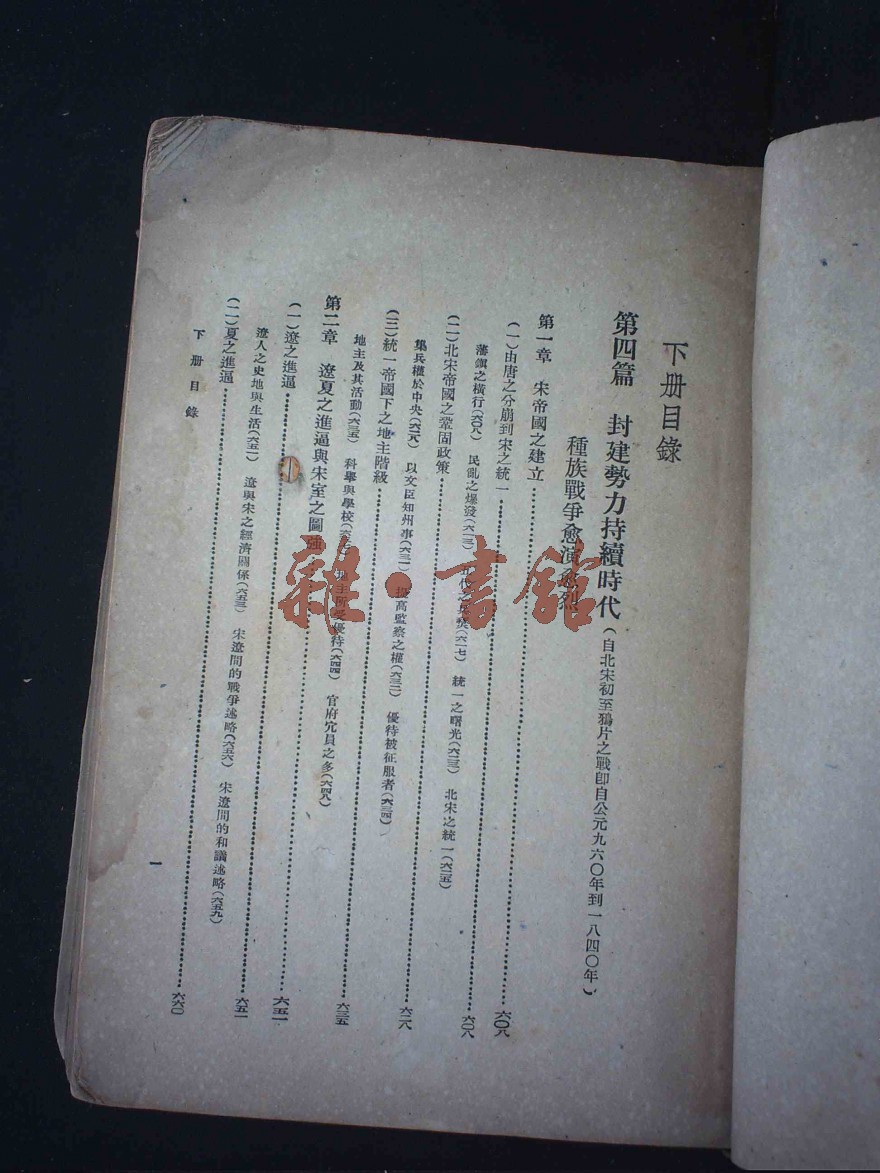 下册目錄
第四篇 封建勢力持續時代(自北宋初至鴉片之戰卽自公元九六〇年到一八四〇年)
種族戰爭愈演愈烈
第一章 宋帝國之建立……六〇八
(一)由唐之分崩到宋之統一……六〇八
藩鎮之橫行(六〇八) 民亂之爆發(六一三) 統一之曙光(六二三) 北宋之統一(六二五)
(二)北宋帝國之鞏固政策……六二八
集兵權於中央(六二八) 以文臣知州事(六三一) 提高監察之權(六三二) 優待被征服者(六三四)
(三)統一帝國下之地主階級……六三五
地主及其活動(六三五) 科舉與學校 地主所受優待(六四四) 官府冗員之多(六四八)
第二章 遼夏之進逼與宋室之圖強……六五一
(一)遼之進逼……六五一
遼人之史地與生活(六五一) 遼與宋之經濟關係(六五三) 宋遼間的戰爭述略(六五六) 宋遼間的和議述略(六五九)
(二)夏之進逼……六六〇
下册目錄
一
雜·書館